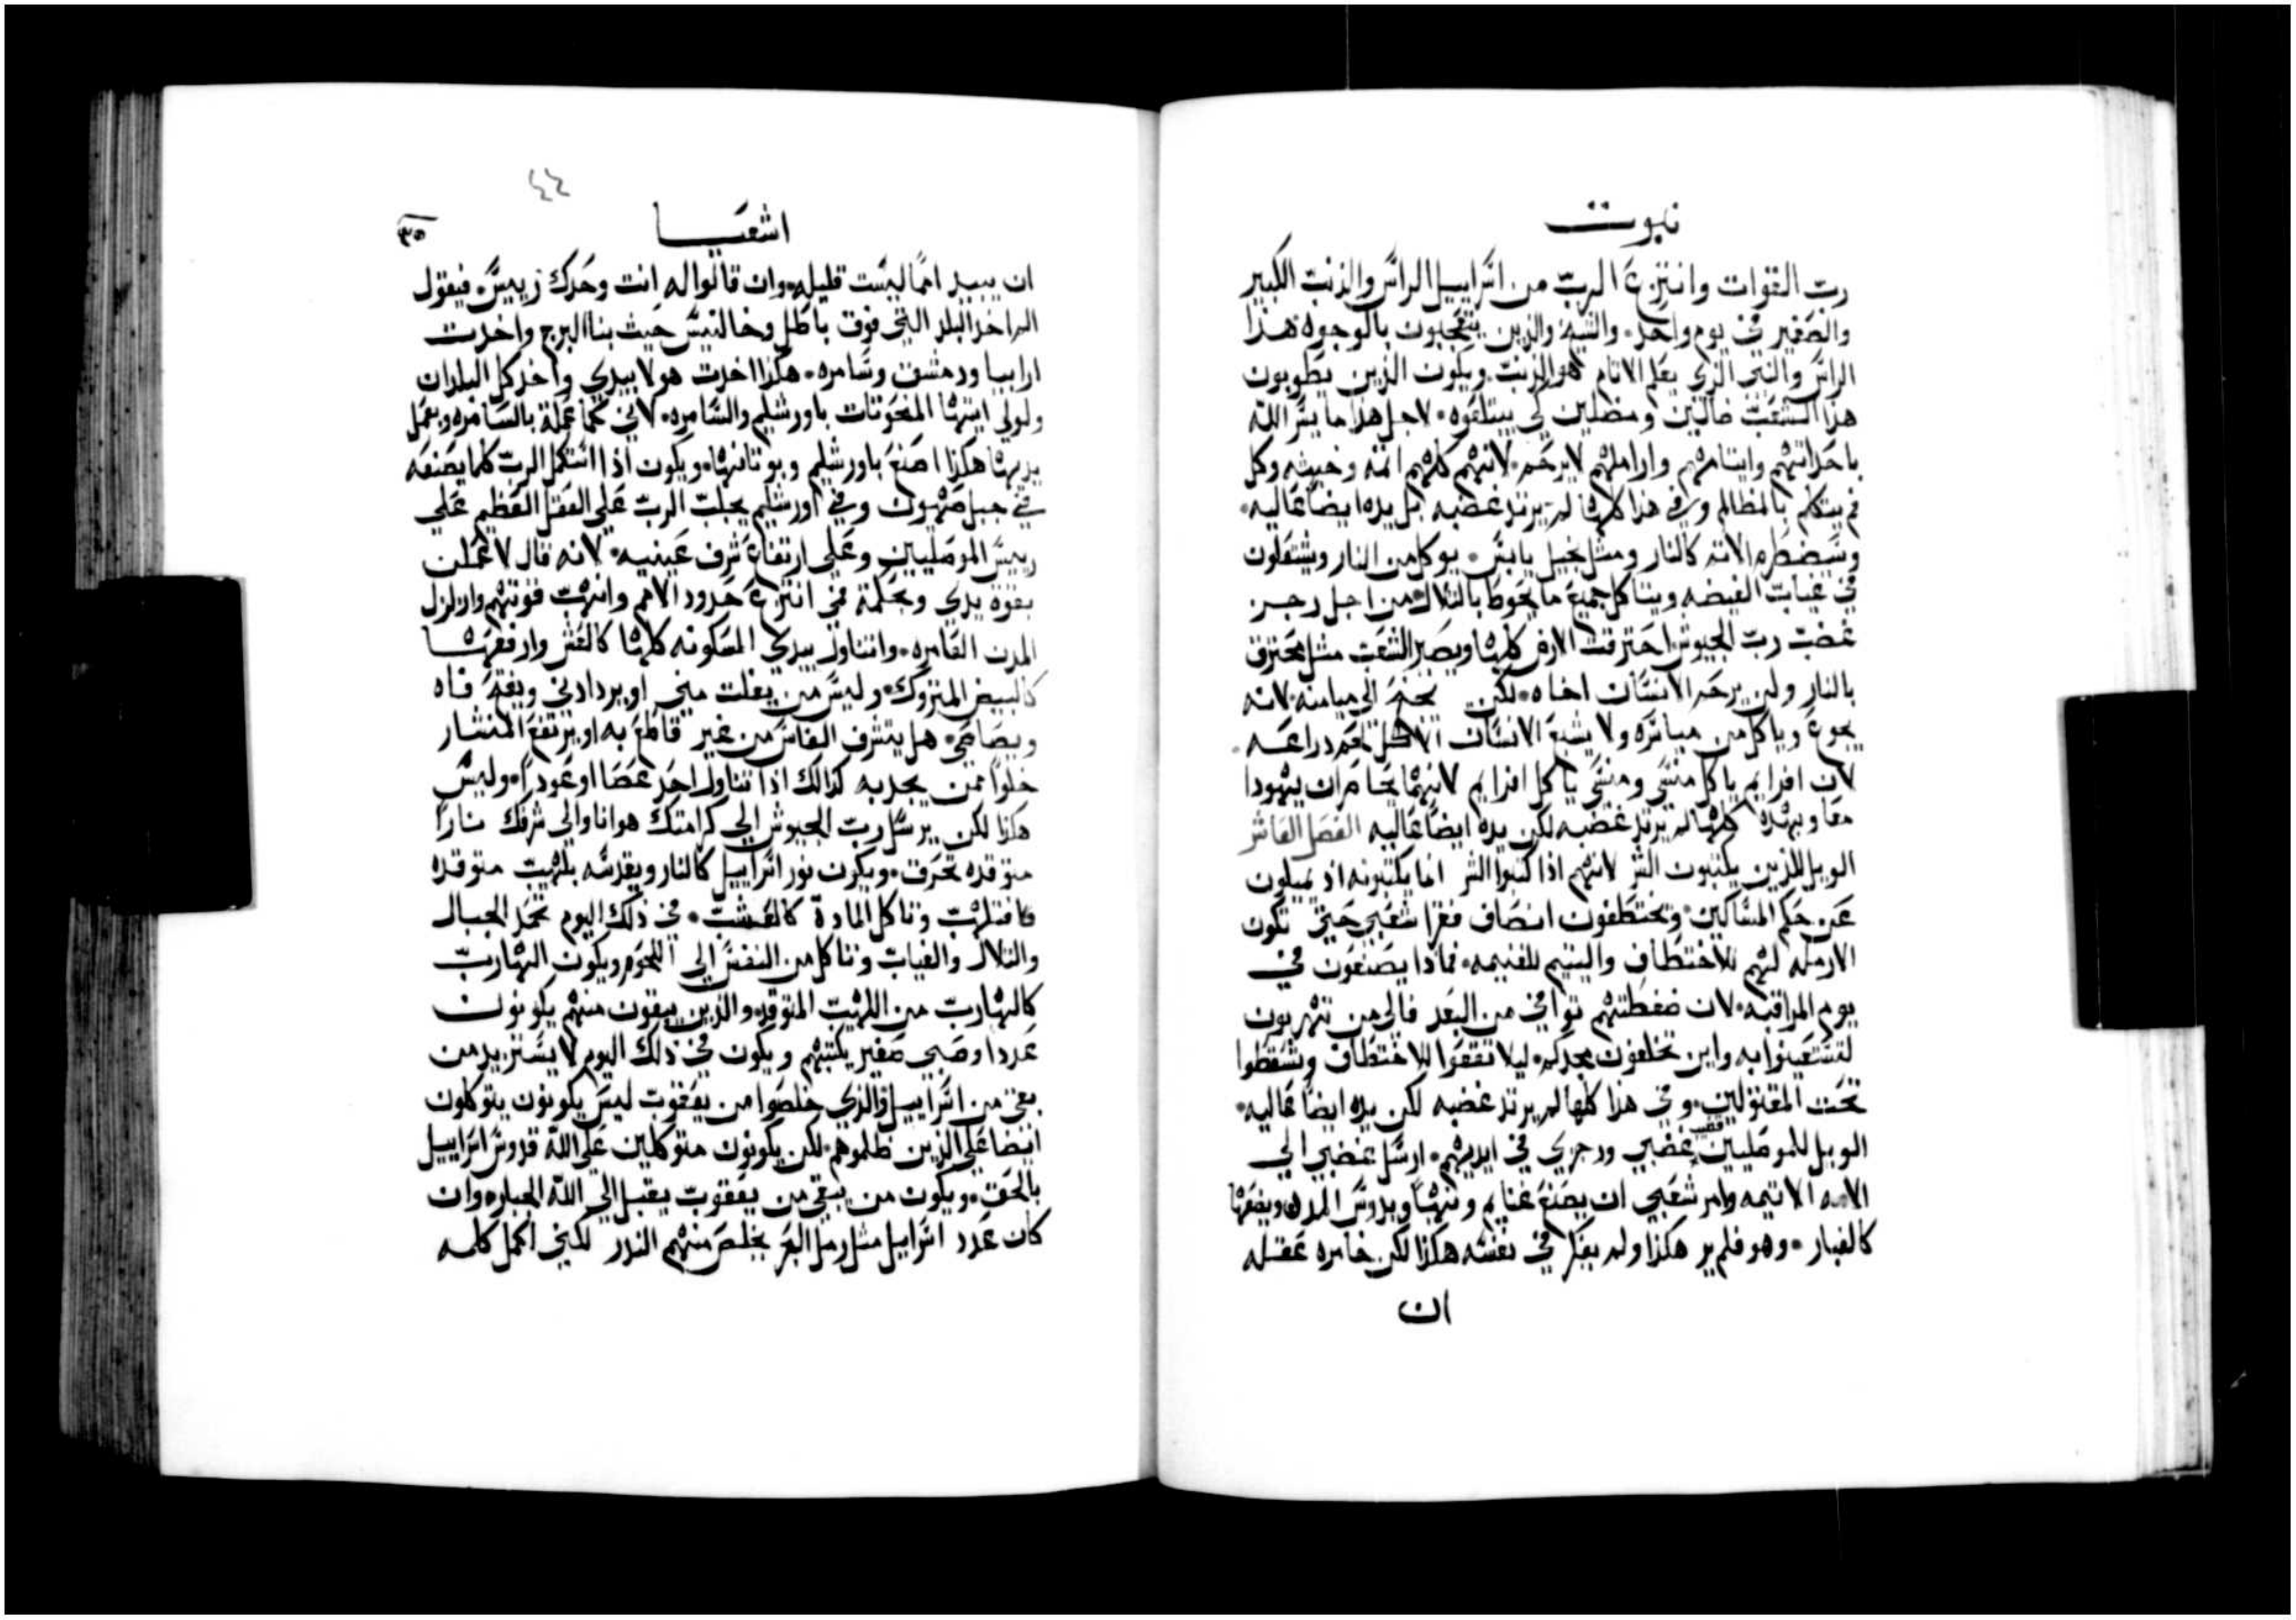 نبوت
رب القوات وانتزع الرب من اسراييل الراس والذنب الكبير
والصغير في يوم واحد والشيه والذين يتعجبون بالوجوه هذا
الراس والنبي الذي يعلم الاثام هو الذنب ويكون الذين يطوبون
هذا الشعب ضالين ومضلين لكي يبتلعوه لاجل هذا ما يسر الله
باحداثهم وايتامهم واراملهم لا يرحم لانهم كلهم اثمه وخبيثه وكل
فم يتكلم بالمظالم وفي هذا كلها لم يرتد غضبه بل يده ايضا عاليه
وسيضطرم الاثم كالنار ومثل نجيل يابس يوكل من النار ويشتعلون
في غيابت الغيضه ويتاكل جميع ما يحوط بالتلال من اجل رجز
غضب رب الجيوش احترقت الارض كلها ويصير الشعب مثل محترق
بالنار ولن يرحم الانسان اخاه لكن يجنح الي ميامنه لانه
يجوع وياكل من مياسره ولا يشبع الانسان اذا اكل لحم دراعه
لان افرايم ياكل منسي ومنسي ياكل افرايم لانهما يحاصران يهودا
معا وبهذه كلها لم يرتد غضبه لكن يده ايضا عاليه الفصل العاشر
الويل للذين يكتبون الشر لانهم اذا كتبوا الشر انما يكتبونه اذ يميلون
عن حكم المساكين ويختطفون انصاف فقرا شعبي حتي تكون
الارمله لهم للاختطاف واليتيم للغنيمه فماذا يصنعون في
يوم المراقبه لان ضغطتهم توافي من البعد فالي من تهربون
لتستعينوا به واين تخلفون مجدكم ليلا تقعوا للاختطاف وتسقطوا
تحت المقتولين وفي هذا كلها لم يرتد غضبه لكن يده ايضا عاليه
الويل للموصليين قضيب غضبي ورجزي في ايديهم ارسل غضبي الي
الامه الاثيمه وامر شعبي ان يصنع غنايم ونهبا ويدوس المدن ويضعها
كالغبار وهو فلم ير هكذا ولم يفكر في نفسه هكذا لكن خامره عقله
ان
٤٤
اشعيا
٣٥
ان يبيد امما ليست قليله وان قالوا له انت وحدك رييس فيقول
الم اخذ البلد التي فوق بابل وخالنيس حيث بنا البرج واخدت
ارابيا ودمشق وسامره هكذا اخدت هولا بيدي واخد كل البلدان
ولولي ايتها المنحوتات باورشليم والسامره لاني كما عملة بالسامره وبعمل
يديها هكذا اصنع باورشليم وبوثانها ويكون اذا استكمل الرب كلما يصنعه
في جبل صهيون وفي اورشليم يجلب الرب علي العقل العظيم علي
رييس الموصليين وعلي ارتفاع شرف عينيه لانه قال لا عملت
بقوة يدي وبحكمة في انتزع حدود الامم وانهب قوتهم وازلزل
المدن العامره واتناول بيدي المسكونه كلها كالعش وارفعها
كالبيض المتروك وليس من يفلت مني او يرادني ويفتح فاه
ويصاصي هل يتشرف الفاس من غير قاطع به او يرتفع المنشار
خلوا ممن يجديه كذالك اذا تناول احد عصا او عودا وليس
هكذا لكن يرسل رب الجيوش الي كرامتك هوانا والي شرفك نارا
متوقده تحرق ويكون نور اسراييل كالنار ويقدسه بلهيب متوقده
فافتلهب وتاكل المادة كالعشب في ذلك اليوم تخمد الجبال
والتلال والغياب وتاكل من النفس الي اللحوم ويكون الهارب
كالهارب من اللهيب المتوقد والذين يبقون منهم يكونون
عددا وصبي صغير يكتبهم ويكون في ذلك اليوم لا يستزيد من
بقي من اسراييل والذي خلصوا من يعقوب ليس يكونون يتوكلون
ايضا علي الذين ظلموهم لكن يكونون متوكلين علي الله قدوس اسراييل
بالحق ويكون من يبقي من يعقوب يقبل الي الله الجبار وان
كان عدد اسراييل مثل رمل البحر يخلص منهم النزر لكني اكمل كلمه